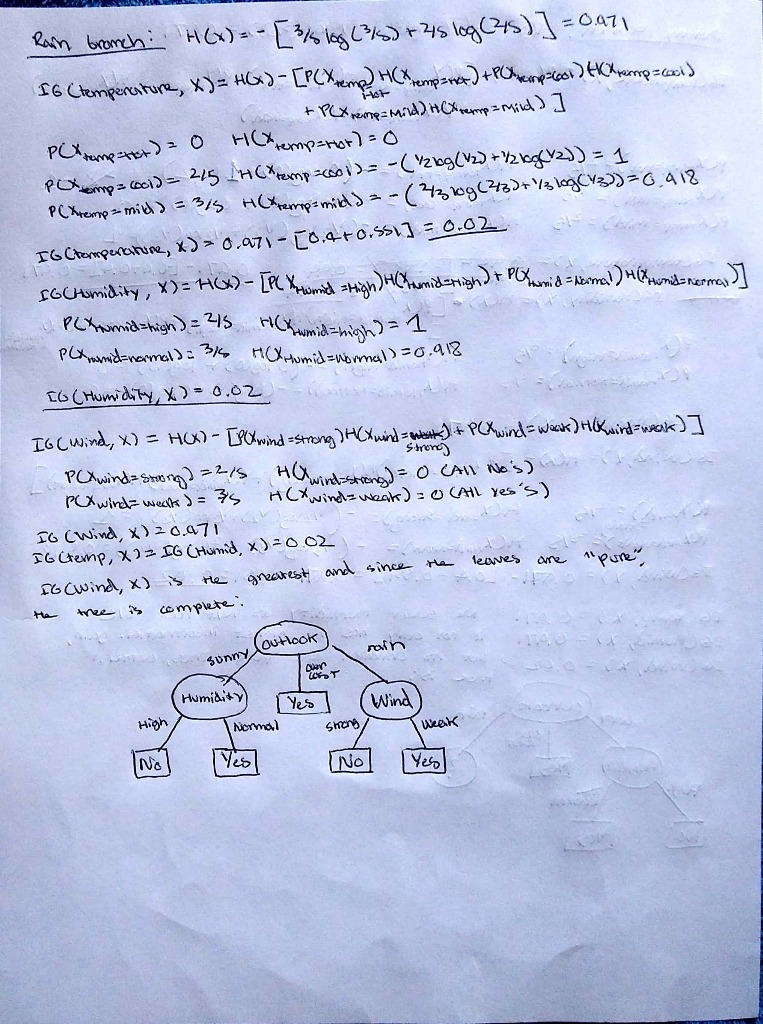 Rain branch: H(x) = - [3/5 log(3/5) + 2/5 log(2/5)] = 0.971
IG(temperature, X) = H(x) - [P(Xtemp=Hot) H(Xtemp=Hot) + P(Xtemp=cool) H(Xtemp=cool)
+ P(Xtemp=Mild) H(Xtemp=mild)]
P(Xtemp=Hot) = 0 H(Xtemp=Hot) = 0
P(Xtemp=cool) = 2/5 H(Xtemp=cool) = -(1/2 log(1/2) + 1/2 log(1/2)) = 1
P(Xtemp=mild) = 3/5 H(Xtemp=mild) = -(2/3 log(2/3) + 1/3 log(1/3)) = 0.918
IG(temperature, X) = 0.971 - [0.4 + 0.551] = 0.02
IG(Humidity, X) = H(X) - [P(XHumid=High) H(XHumid=High) + P(XHumid=Normal) H(XHumid=normal)]
P(XHumid=high) = 2/5 H(XHumid=high) = 1
P(XHumid=normal) = 3/5 H(XHumid=Normal) = 0.918
IG(Humidity, X) = 0.02
IG(Wind, X) = H(X) - [P(Xwind=strong) H(Xwind=strong) + P(Xwind=weak) H(Xwind=weak)]
P(Xwind=strong) = 2/5 H(Xwind=strong) = 0 (All No's)
P(Xwind=weak) = 3/5 H(Xwind=weak) = 0 (All Yes's)
IG(Wind, X) = 0.971
IG(temp, X) = IG(Humid, X) = 0.02
IG(Wind, X) is the greatest and since the leaves are "pure",
the tree is complete:
Outlook
sunny
over
cast
rain
Humidity
Yes
Wind
High
Normal
strong
Weak
No
Yes
No
Yes